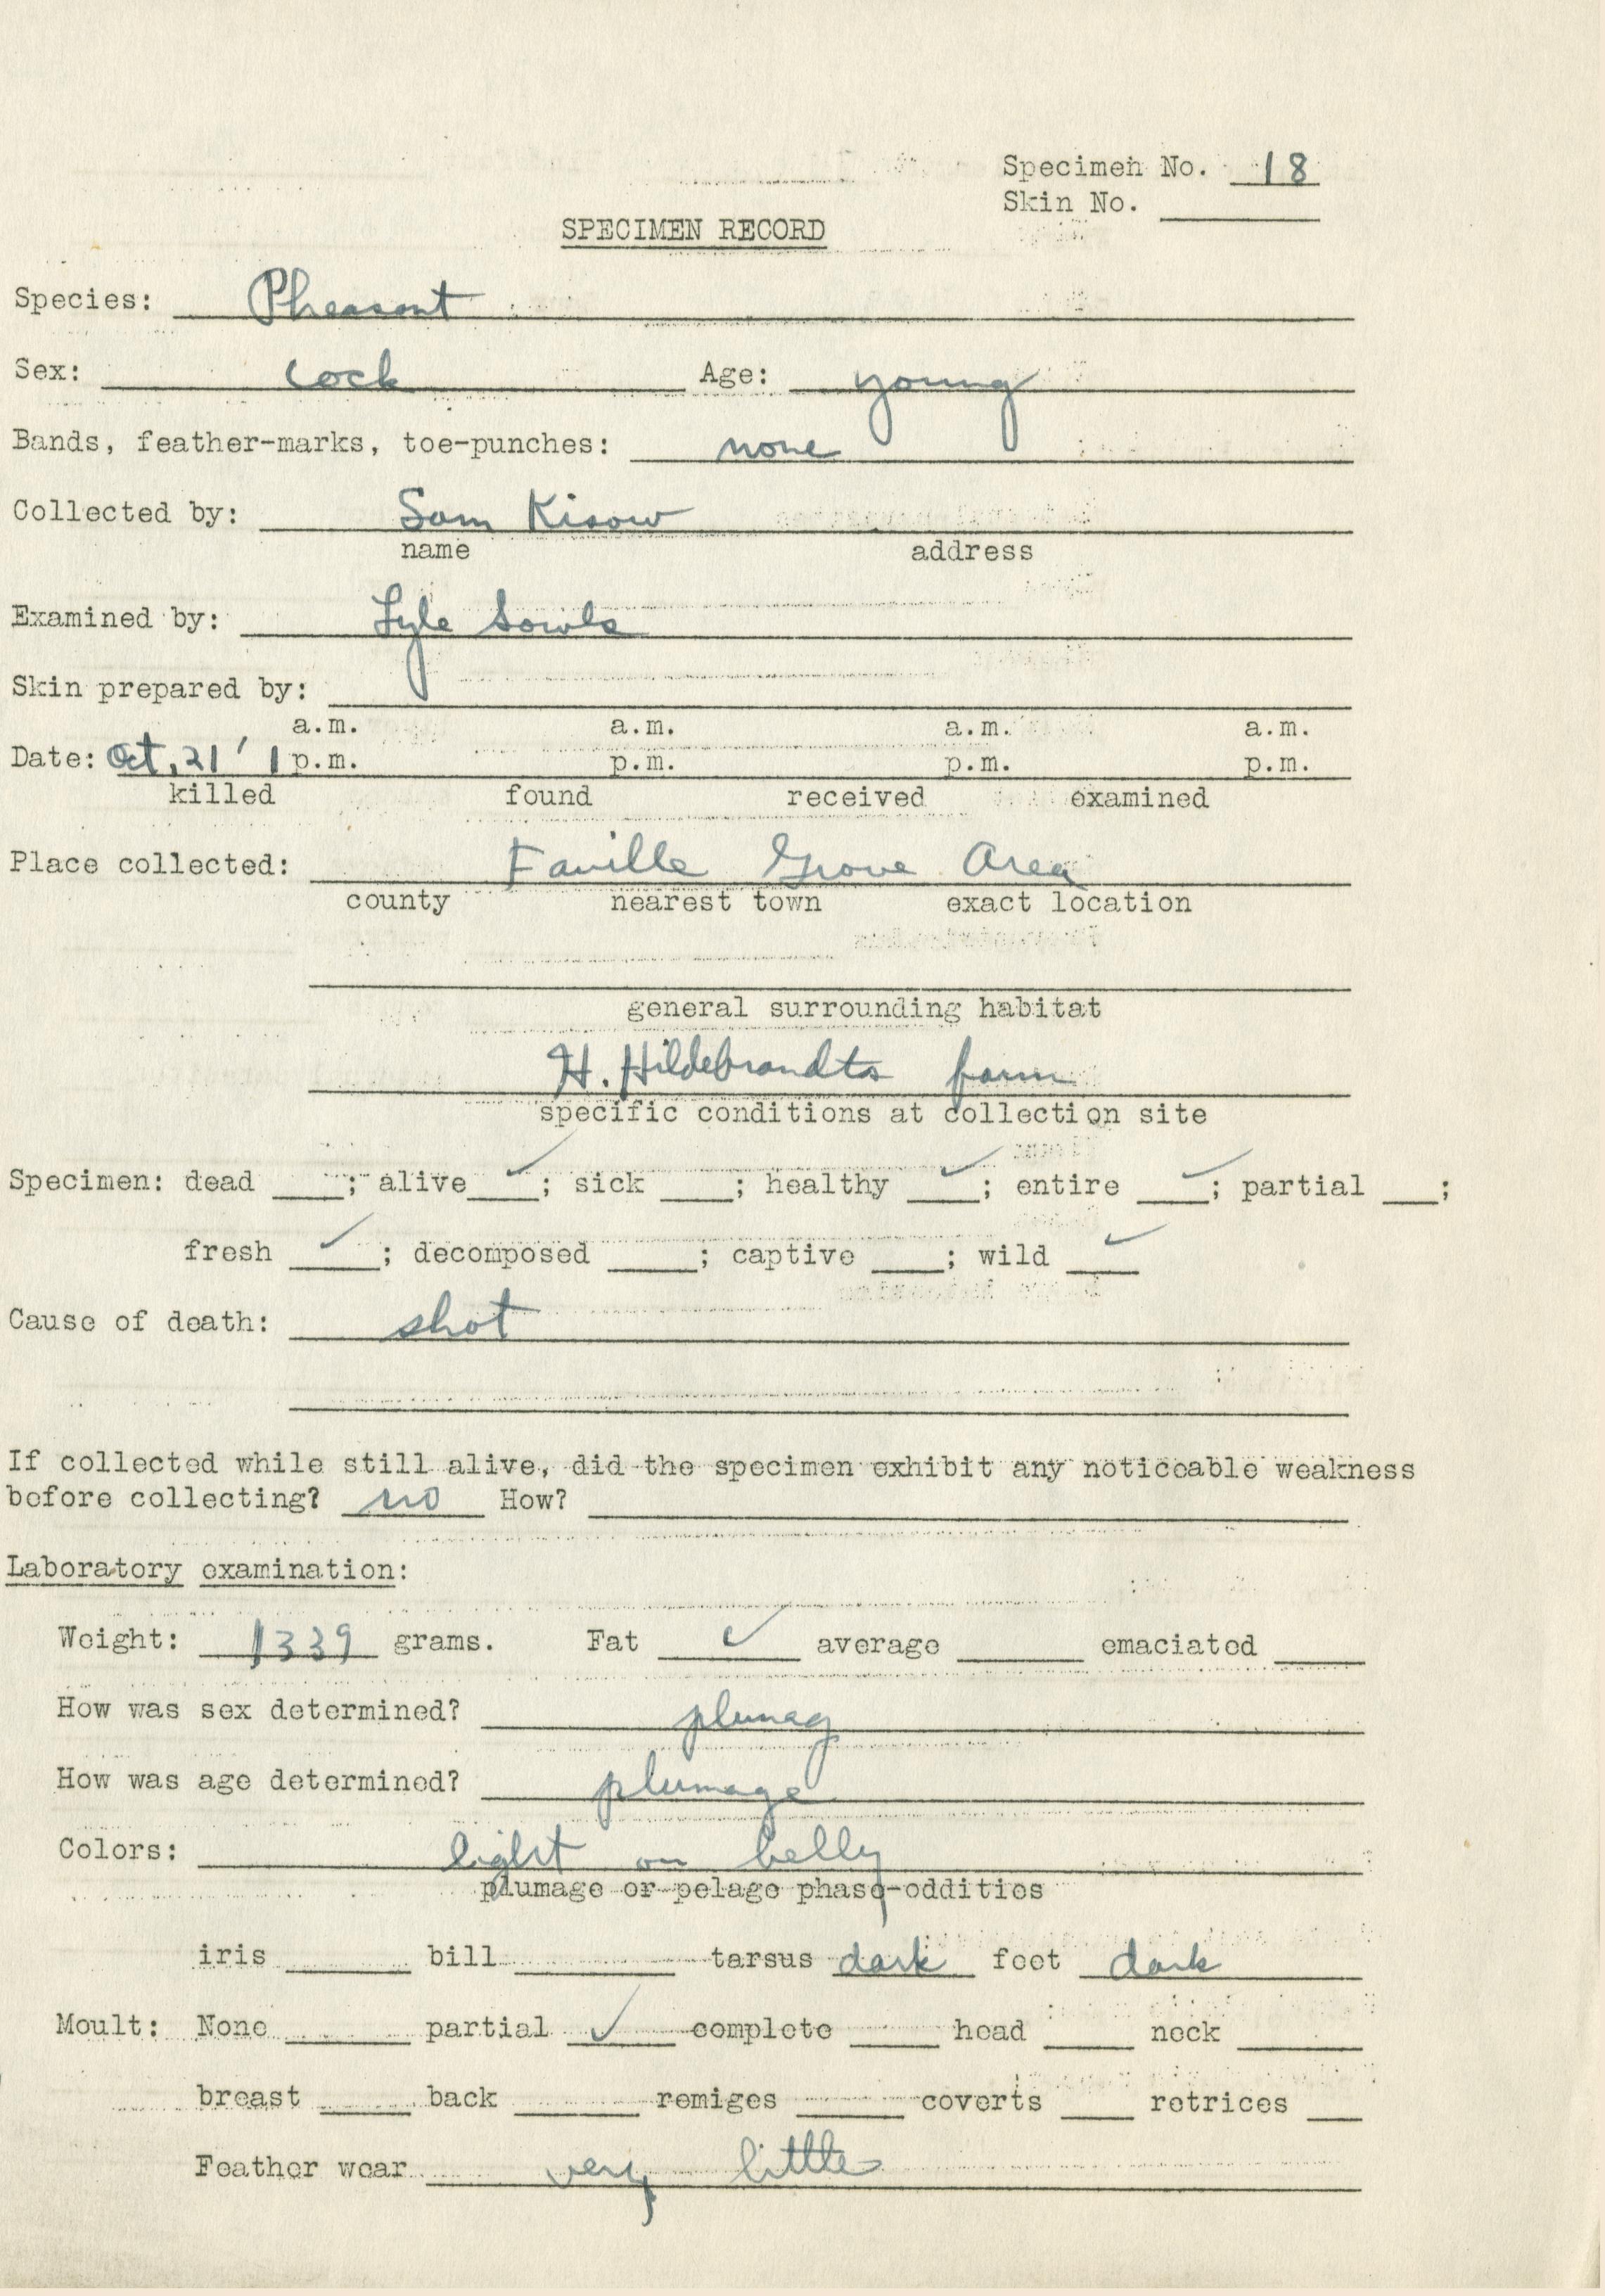 Specimen No. 18
Skin No.
SPECIMEN RECORD
Species: Pheasant
Sex: cock Age: young
Bands, feather-marks, toe-punches: none
Collected by: Sam Kisow
name address
Examined by: Lyle Sowls
Skin prepared by:
a.m. a.m. a.m. a.m.
Date: Oct, 21 ' 1 p.m. p.m. p.m. p.m.
killed found received examined
Place collected: Faville Grove Area
county nearest town exact location
general surrounding habitat
H. Hildebrandts farm
specific conditions at collection site
Specimen: dead ; alive ✓; sick ; healthy ✓; entire ✓; partial ;
fresh ✓; decomposed ; captive ; wild ✓
Cause of death: shot
If collected while still alive, did the specimen exhibit any noticeable weakness
before collecting? no How?
Laboratory examination:
Weight: 1339 grams. Fat ✓ average emaciated
How was sex determined? plumag
How was age determined? plumage
Colors: light on belly
plumage or pelage phase-oddities
iris bill tarsus dark foot dark
Moult: None partial ✓ complete head neck
breast back remiges coverts retrices
Feather wear very little